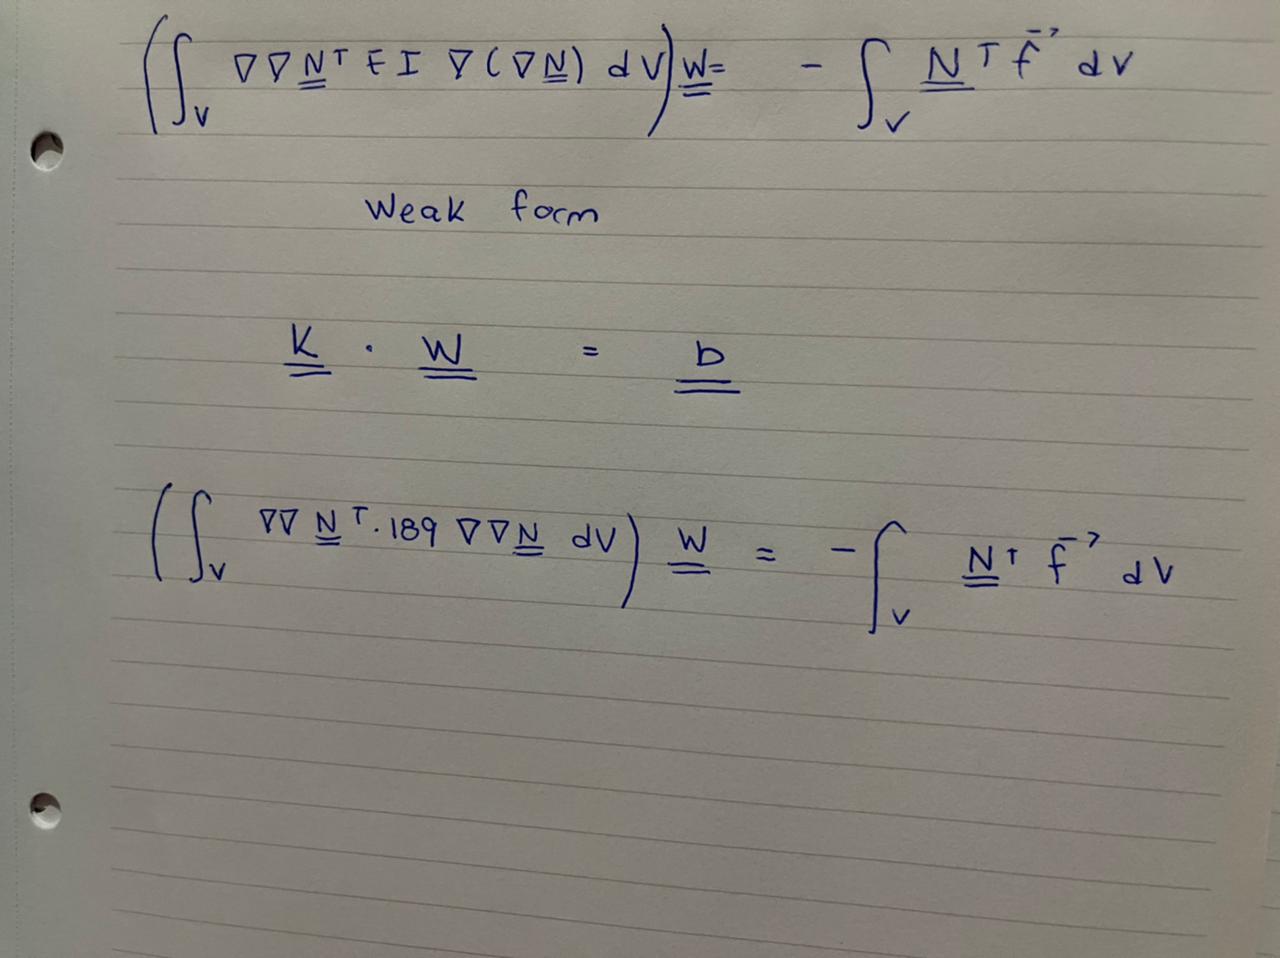 (∫_V ∇∇N̳ᵀ E I ∇(∇N̳) dV) W̳ = - ∫_V N̳ᵀ f⃗ dV
Weak form
K̳ · W̳ = b̳
(∫_V ∇∇N̳ᵀ · 189 ∇∇N̳ dV) W̳ = - ∫_V N̳ᵀ f⃗ dV